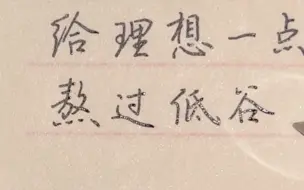 给理想一点
熬过低谷